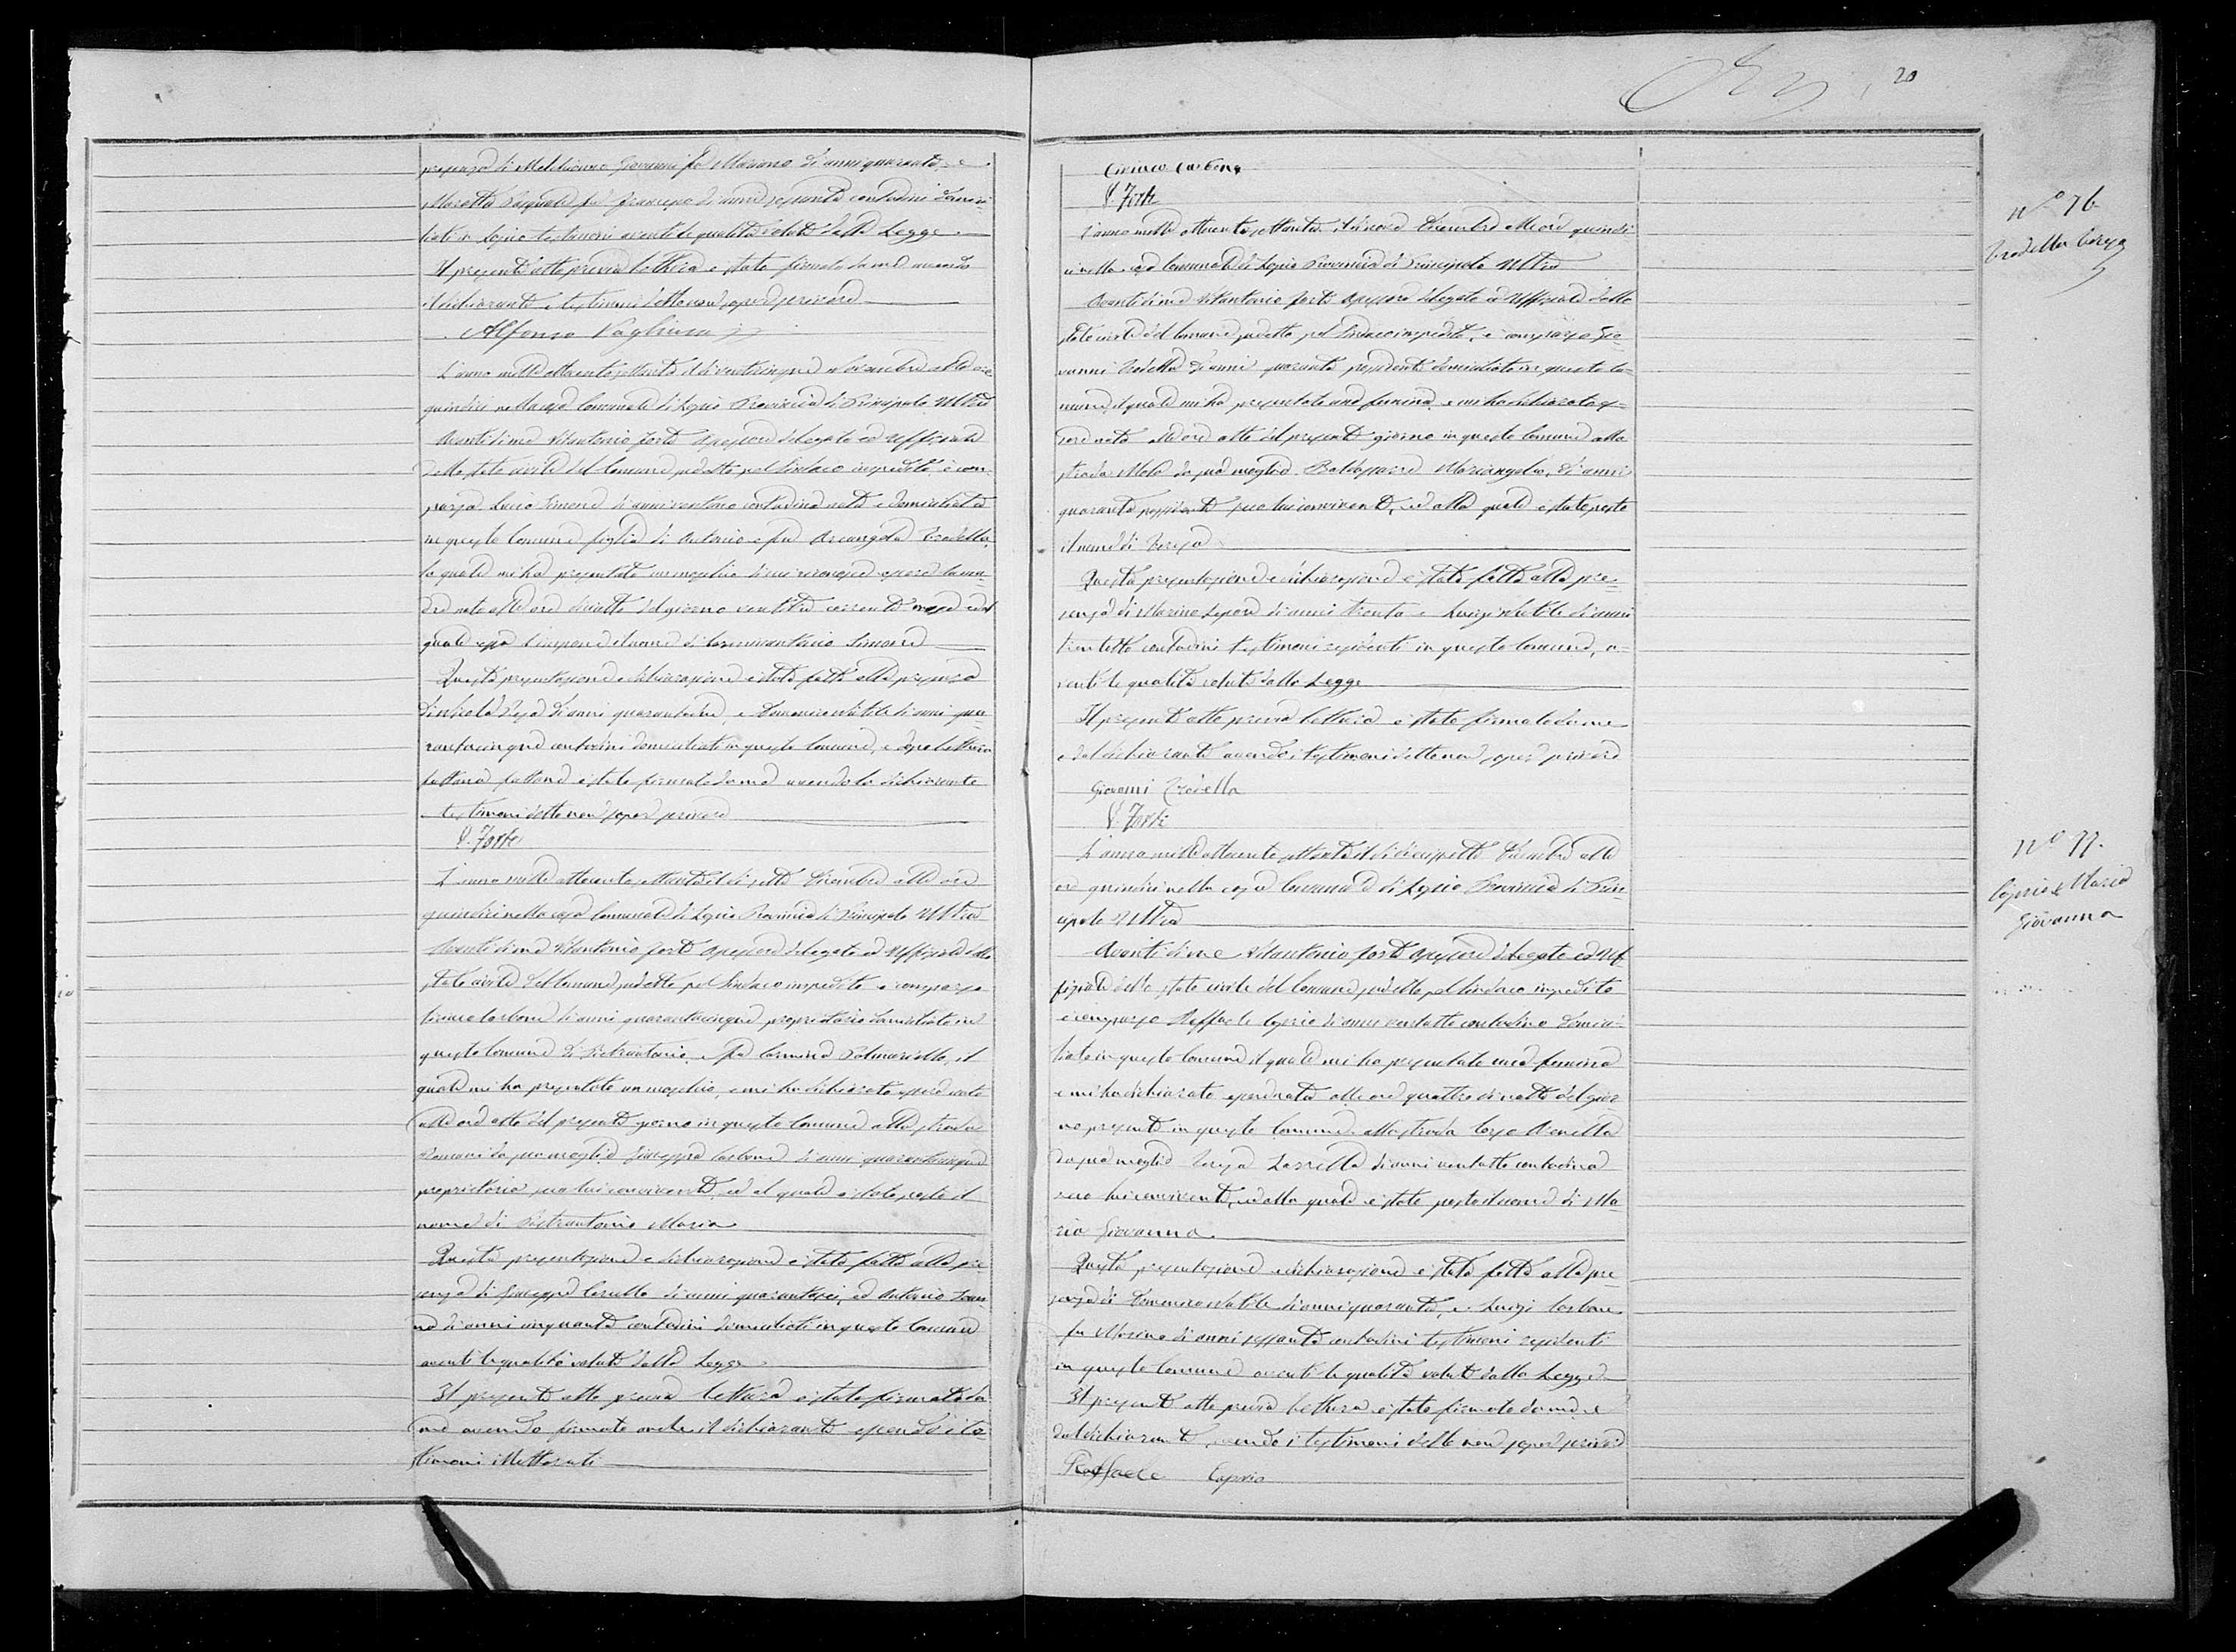 presenza di Melchionno Giovanni fu Mariano di anni quaranta, e
Marotta Pasquale fu Francesco di anni sessanta contadini domici-
liati in Lapio testimoni aventi le qualità volute dalla Legge
Il presente atto previa lettura è stato firmato da me avendo
il dichiarante e testimoni detto non saper scrivere
Alfonso Vagliura
L'anno mille ottocento settanta il dì venticinque Novembre alle ore
quindici nella casa Comunale di Lapio Provincia di Principato Ultra
Avanti di me Vitantonio Forte Assessore delegato ed Uffiziale
dello stato civile del Comune suddetto pel Sindaco impedito è com-
parsa Lucia Simone di anni ventuno contadina nata e domiciliata
in questo Comune figlia di Antonio e fu Arcangela Trodella,
la quale mi ha presentato un maschio di cui riconosce essere la ma-
dre nato alle ore diciotto del giorno ventitre corrente mese ed al
quale essa impone il nome di Simone
Questa presentazione e dichiarazione è stata fatta alla presenza
di Nicola di anni quarantadue, e Domenico Natile di anni qua-
rantacinque contadini domiciliati in questo Comune, e dopo lettura
fattane è stato firmato da me avendo la dichiarante
e testimoni detto non saper scrivere
V. Forte
L'anno mille ottocento settanta il dì sette Dicembre alle ore
quindici nella casa Comunale di Lapio Provincia di Principato Ultra
Avanti di me Vitantonio Forte Assessore delegato ed Uffiziale dello
stato civile del Comune suddetto pel Sindaco impedito è comparso
Ciriaco Carbone di anni quarantacinque proprietario domiciliato in
questo Comune di Pietrantonio e fu Carmina Palmariello, il
quale mi ha presentato un maschio, e mi ha dichiarato essere nato
alle ore otto del presente giorno in questo Comune alla strada
Romani da sua moglie Giuseppa Carbone di anni quarantacinque
proprietaria seco lui convivente, ed al quale è stato posto il
nome di Pietrantonio Maria
Questa presentazione e dichiarazione è stata fatta alla pre-
senza di Giuseppe di anni quarantasei, ed Antonio
di anni cinquanta contadini domiciliati in questo Comune
aventi le qualità volute dalla Legge
Il presente atto previa lettura è stato firmato da
me avendo firmato anche il dichiarante essendo i te-
stimoni illetterati
20
Ciriaco Carbone
V. Forte
L'anno mille ottocento settanta il dì nove Dicembre alle ore quindi-
ci nella casa Comunale di Lapio Provincia di Principato Ultra
Avanti di me Vitantonio Forte Assessore delegato ed Uffiziale dello
stato civile del Comune suddetto pel Sindaco impedito, è comparso Gio-
vanni Trodella di anni quaranta possidente domiciliato in questo Co-
mune, il quale mi ha presentato una femina, e mi ha dichiarato es-
sere nata alle ore otto del presente giorno in questo Comune alla
strada da sua moglie Baldassarre Mariangela, di anni
quaranta possidente seco lui convivente, ed alla quale è stato posto
il nome di Teresa
Questa presentazione e dichiarazione è stata fatta alla pre-
senza di Marino Lepore di anni trenta e Luigi Natile di anni
trentotto contadini testimoni residenti in questo Comune, a-
venti le qualità volute dalla Legge
Il presente atto previa lettura è stato firmato da me
e dal dichiarante avendo i testimoni detto non saper scrivere
Giovanni Trodella
V. Forte
L'anno mille ottocento settanta il dì diecisette Dicembre alle
ore quindici nella casa Comunale di Lapio Provincia di Prin-
cipato Ultra
Avanti di me Vitantonio Forte Assessore delegato ed Uf-
fiziale dello stato civile del Comune suddetto pel Sindaco impedito
è comparso Raffaele Caprio di anni ventotto contadino domici-
liato in questo Comune il quale mi ha presentato una femina
e mi ha dichiarato essere nata alle ore quattro di notte del gior-
no presente in questo Comune alla strada Corso
da sua moglie Teresa di anni ventotto contadina
seco lui convivente, ed alla quale è stato posto il nome di Ma-
ria Giovanna
Questa presentazione e dichiarazione è stata fatta alla pre-
senza di Domenico Natile di anni quaranta, e Luigi Carbone
fu Marino di anni sessanta contadini testimoni residenti
in questo Comune aventi le qualità volute dalla Legge
Il presente atto previa lettura è stato firmato da me, e
dal dichiarante, avendo i testimoni detto non saper scrivere
Raffaele Caprio
Nº 76
Trodella Teresa
Nº 77.
Caprio Maria
Giovanna